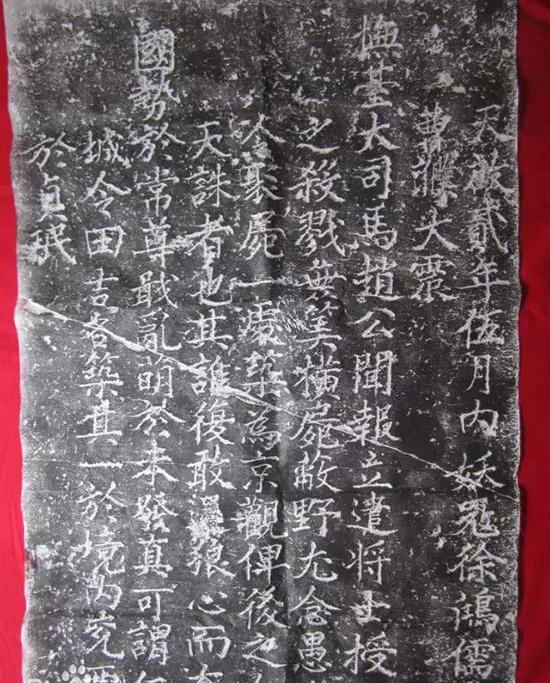 天啟貳年伍月內妖寇徐鴻儒
曹濮大震
撫臺大司馬趙公聞報立遣將士授
之殺戮無筭橫屍蔽野尤念愚
令聚屍一處築為京觀俾後之
天誅者也其誰復敢狼心而
國勢於常尊戢亂萌於未發真可謂
城令田吉各築其一於境內
於貞珉